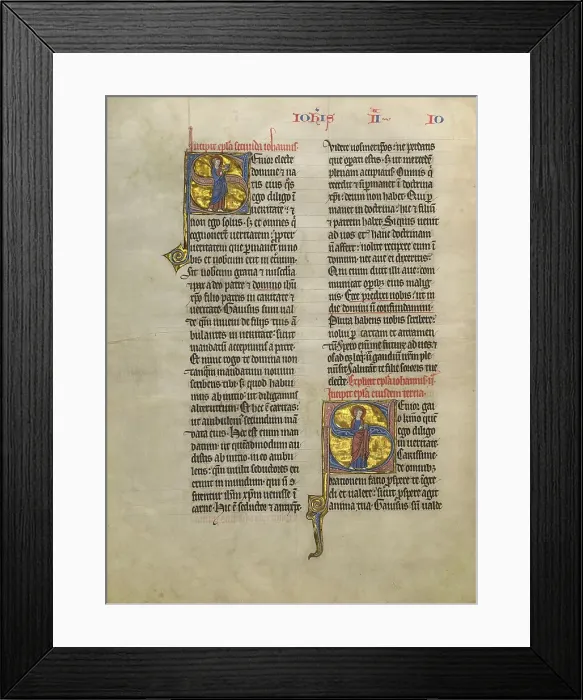 IOHIS II IO
Incipit epla secunda iohannis
Senior electe
domine & na
tis eius qs
ego diligo i
ueritate & 
non ego solus s; et omnes q
cognouerunt ueritatem ppter
ueritatem que pmanet in no
bis et uobiscum erit in etnum
Sit uobiscum gratia & mistcdia
pax a deo patre & domino ihu
xpo filio patris in caritate &
ueritate Gauisus sum ual
de qm inueni de filiis tuis a
bulantes in ueritate sicut
mandatu accepimus a patre
Et nunc rogo te domina non
tanqm mandatum nouum
scribens tibi s; quod habui
mus ab initio ut diligamus
alterutrum Et hec e caritas
ut ambulemus secundum ma
data eius Hoc est enim man
datum ut quemadmodum au
distis ab initio in eo ambu
letis qm multi seductores exi
erunt in mundum qui n o
fitentur ihm xpm uenisse i
carne Hic e seductor & antixpc
Videte uosmetipsos ne perdatis
que operati estis s; ut mercede
plenam accipiatis Omnis q
recedit & n pmanet i doctrina
xpi deum non habet Qui p
manet in doctrina hic & filiu
& patrem habet Si quis uenit
ad uos et hanc doctrinam
n affert nolite recipere eum i
domum nec aue ei dixeritis
Qui enim dixit illi aue com
municat opib; eius malig
nis Ecce predixi uobis ut in
die domini n confundamini
Plura habens uobis scribere
nolui p cartam et atramen
tu Spero enim me futuru ad uos &
os ad os loq ut gaudiu urm ple
nu sit Salutat te filii sororis tue
electe Explicit epla iohannis ii
Incipit epla eiusdem tercia
Senior gai
o kmo que
ego diligo
in ueritate
Carissime
de omnib;
orationem facio pspere te ingre
di et ualere sicut pspere agit
anima tua Gauisus sum ualde